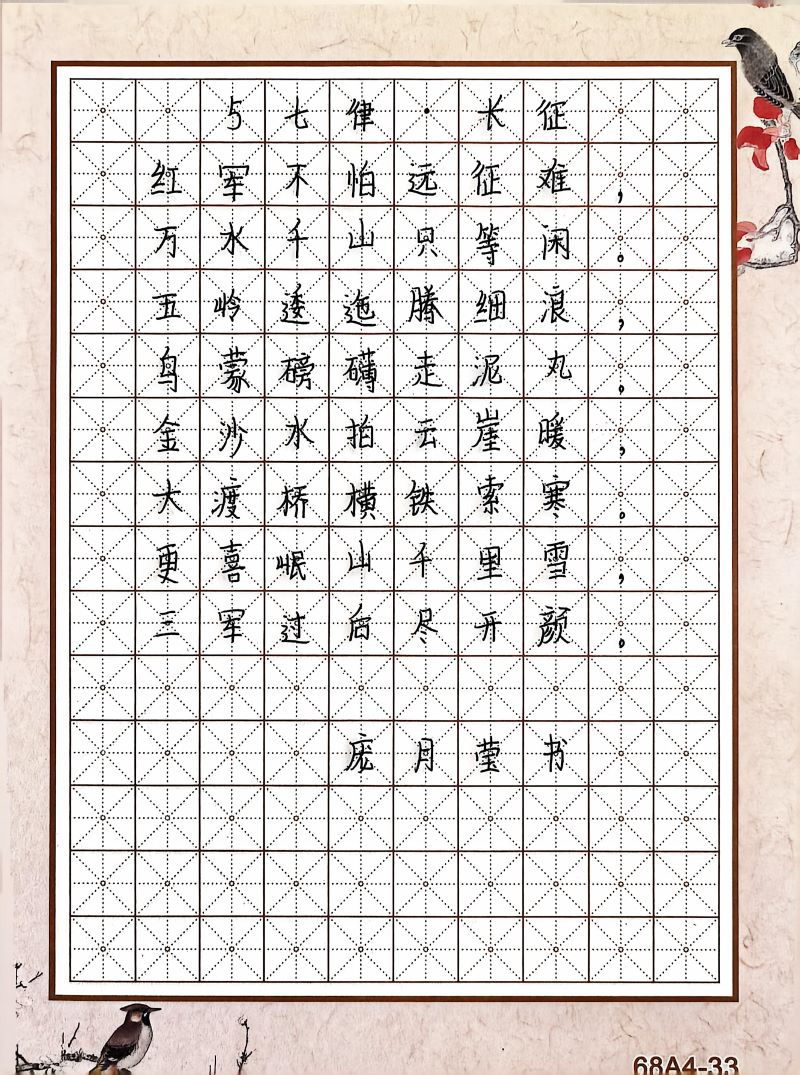 5七律·长征
红军不怕远征难，
万水千山只等闲。
五岭逶迤腾细浪，
乌蒙磅礴走泥丸。
金沙水拍云崖暖，
大渡桥横铁索寒。
更喜岷山千里雪，
三军过后尽开颜。
庞月莹书
68A4-33